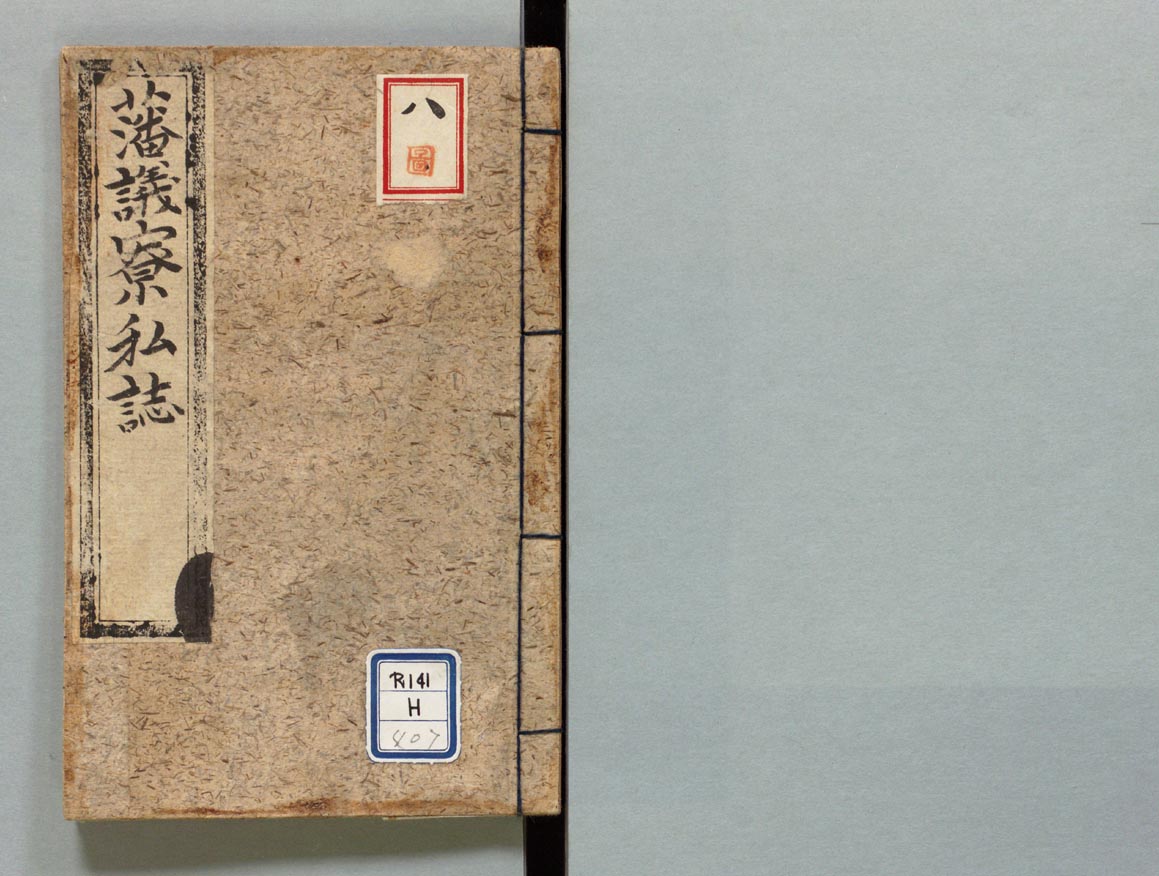 藩議寮私誌
八
圖
R141
H
407